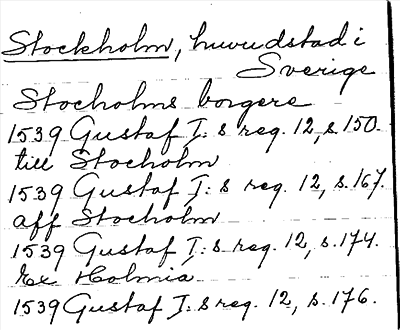 Stockholm, huvudstad i
Sverige
Stocholms borgere
1539 Gustaf I: s reg. 12, s. 150.
till Stocholm
1539 Gustaf I: s reg. 12, s. 167.
aff Stocholm
1539 Gustaf I: s reg. 12, s. 174.
Ex Holmia
1539 Gustaf I: s reg. 12, s. 176.